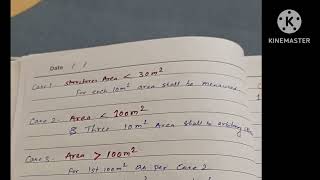 KINEMASTER
Date / /
Case 1 structures Area < 30m²
For each 10m² area shall be measured
Case 2 Area < 100m²
& Three 10m² Area shall be arbitrary
Case 3. Area > 100m²
For 1st 100m² as per case 2